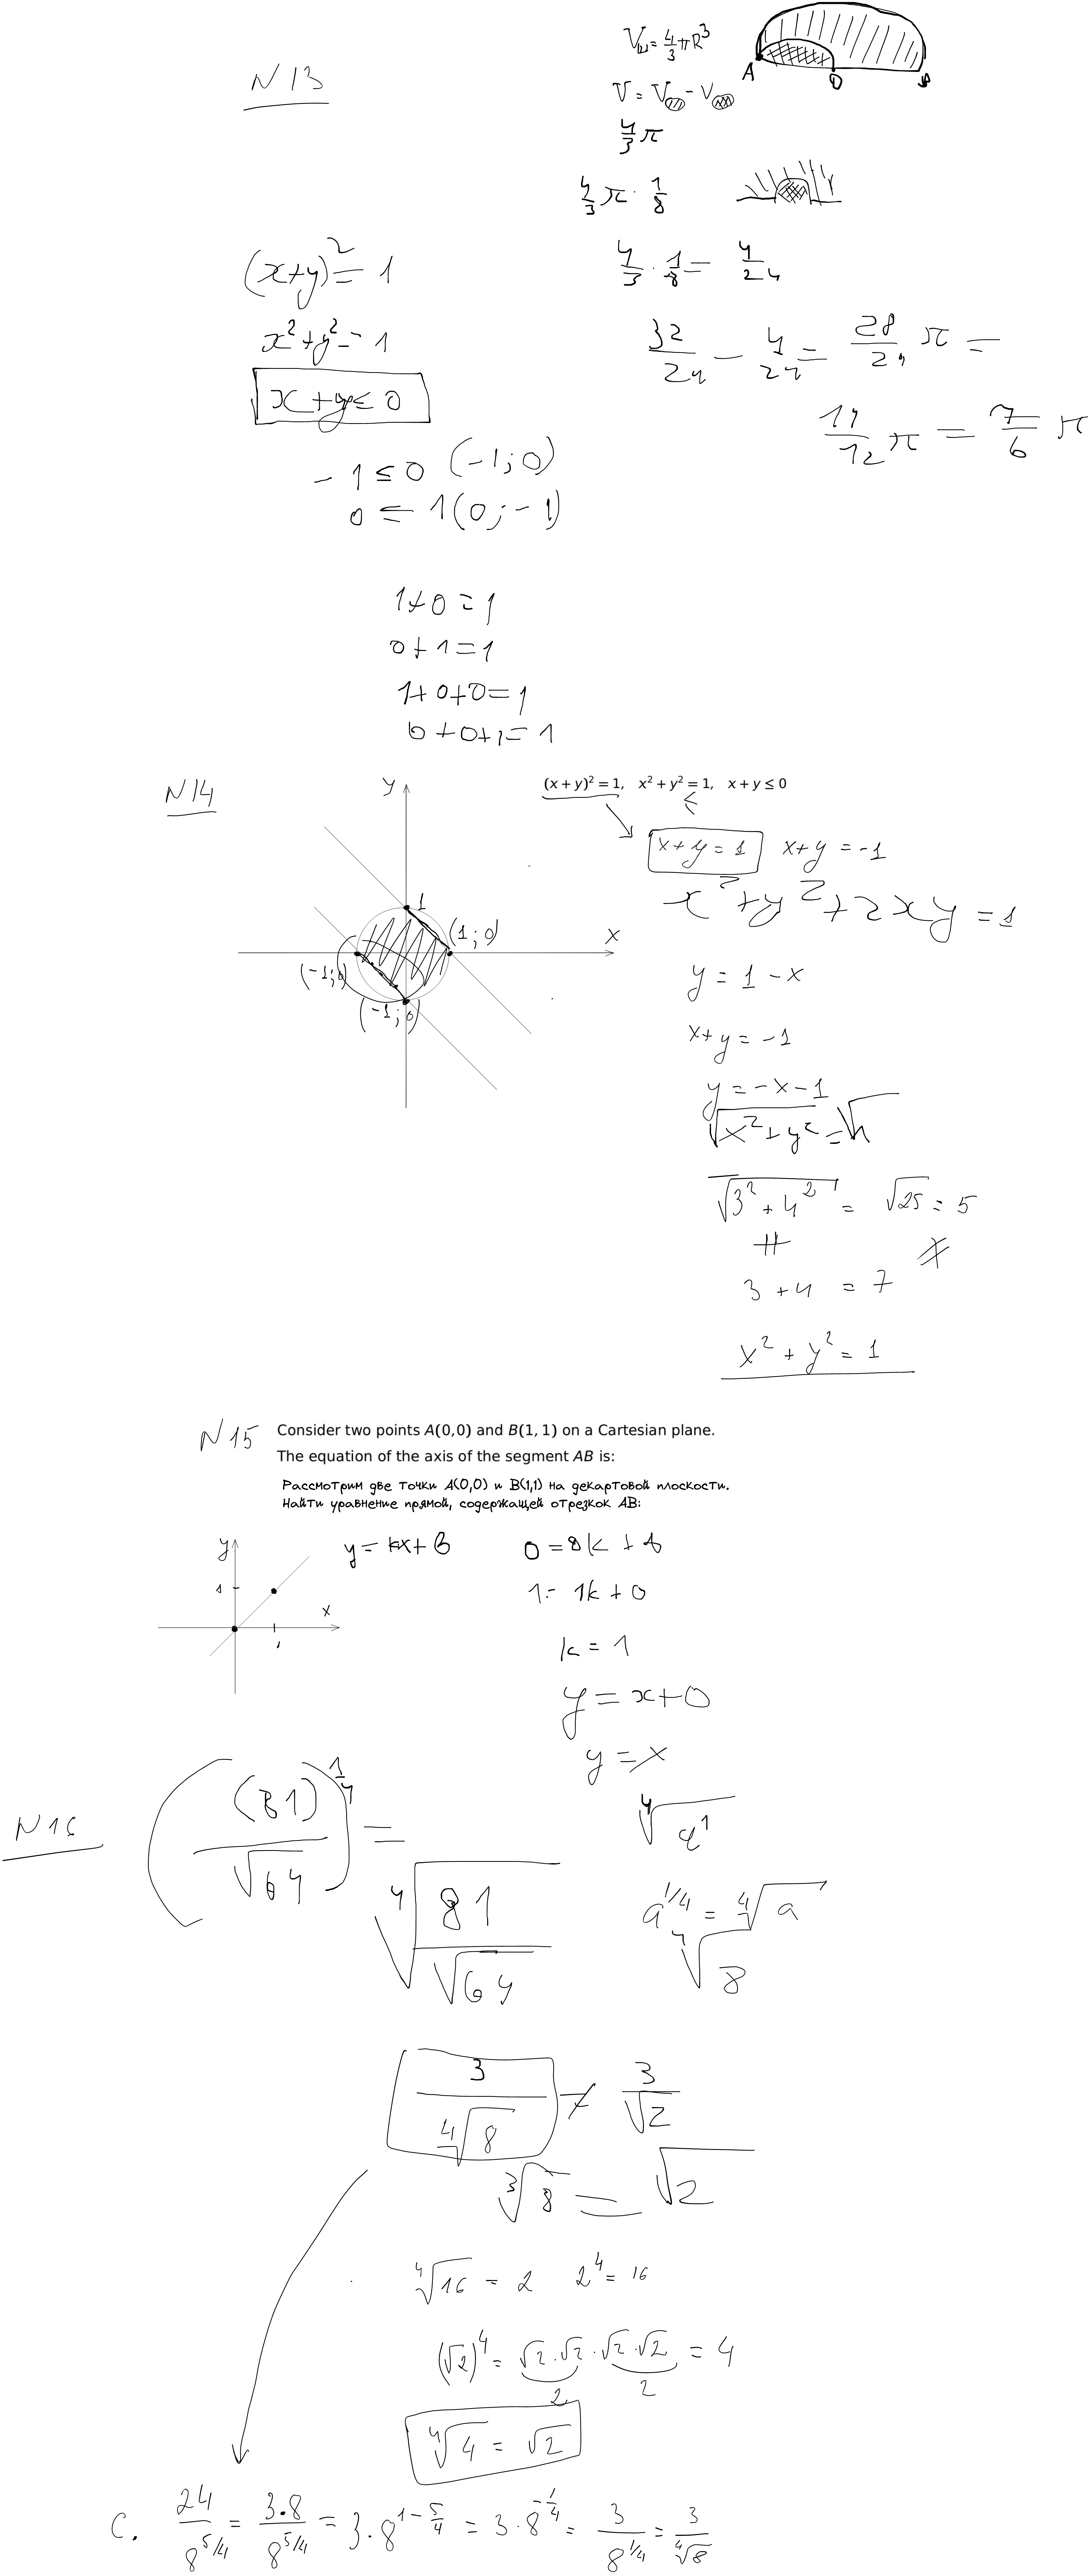 N13
V_ш = 4/3 πR³
A O B
V = V - V
4/3 π
4/3 π · 1/8
4/3 · 1/8 = 4/24
32/24 - 4/24 = 28/24 π =
14/12 π = 7/6 π
(x+y)² = 1
x² + y² = 1
x + y ≤ 0
-1 ≤ 0 (-1; 0)
0 ≤ 1 (0; -1)
1 + 0 = 1
0 + 1 = 1
1 + 0 + 0 = 1
0 + 0 + 1 = 1
N14
y
(x + y)² = 1, x² + y² = 1, x + y ≤ 0
≤
x + y = 1 x + y = -1
x² + y² + 2xy = 1
1
(1; 0)
x
(-1; 0)
(-1; 0)
y = 1 - x
x + y = -1
y = -x - 1
√(3² + 4²) = √25 = 5
3 + 4 = 7
x² + y² = 1
N15 Consider two points A(0,0) and B(1, 1) on a Cartesian plane.
The equation of the axis of the segment AB is:
Рассмотрим две точки A(0,0) и B(1,1) на декартовой плоскости.
Найти уравнение прямой, содержащей отрезкок AB:
y
1
x
y = kx + b
1 = 1k + 0
k = 1
y = x + 0
y = x
N16
((81)/√64)^(1/4) =
⁴√(81/√64)
a^(1/4) = ⁴√a
⁴√8
3/⁴√8 ≠ 3/√2
³√8 = √2
⁴√16 = 2 2⁴ = 16
(√2)⁴ = √2 · √2 · √2 · √2 = 4
2 2
⁴√4 = √2
C. 24/8^(5/4) = 3·8/8^(5/4) = 3 · 8^(1 - 5/4) = 3 · 8^(-1/4) = 3/8^(1/4) = 3/⁴√8